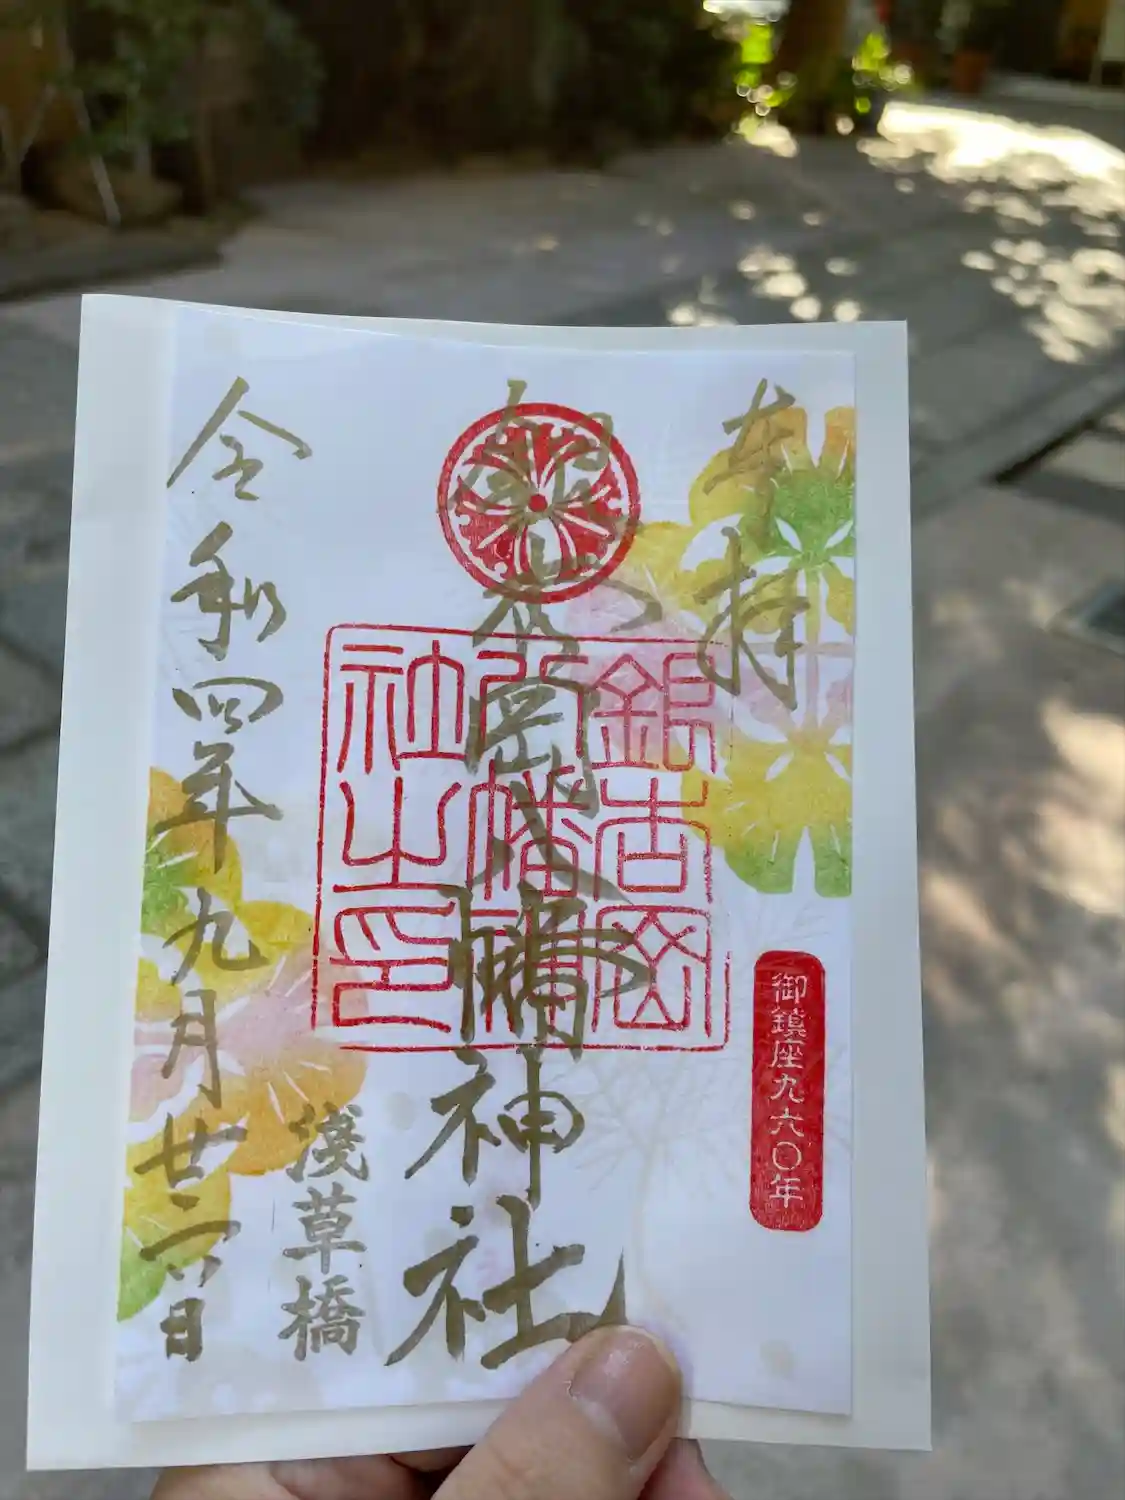 奉拝
御鎮座九六〇年
銀杏岡八幡神社
銀杏岡
八幡神
社之印
浅草橋
令和四年九月廿六日